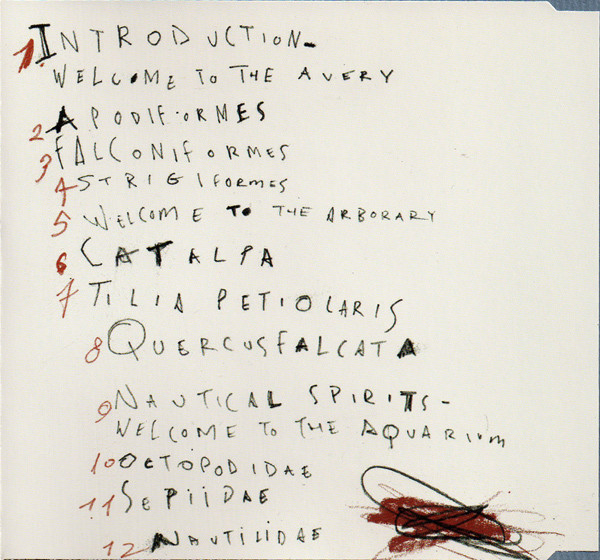 1. INTRODUCTION-
WELCOME TO THE AVERY
2 APODIFORMES
3 FALCONIFORMES
4 STRIGIFORMES
5 WELCOME TO THE ARBORARY
6 CATALPA
7 TILIA PETIOLARIS
8 QUERCUS FALCATA
9 NAUTICAL SPIRITS-
WELCOME TO THE AQUARIUM
10 OCTOPODIDAE
11 SEPIIDAE
12 NAUTILIDAE